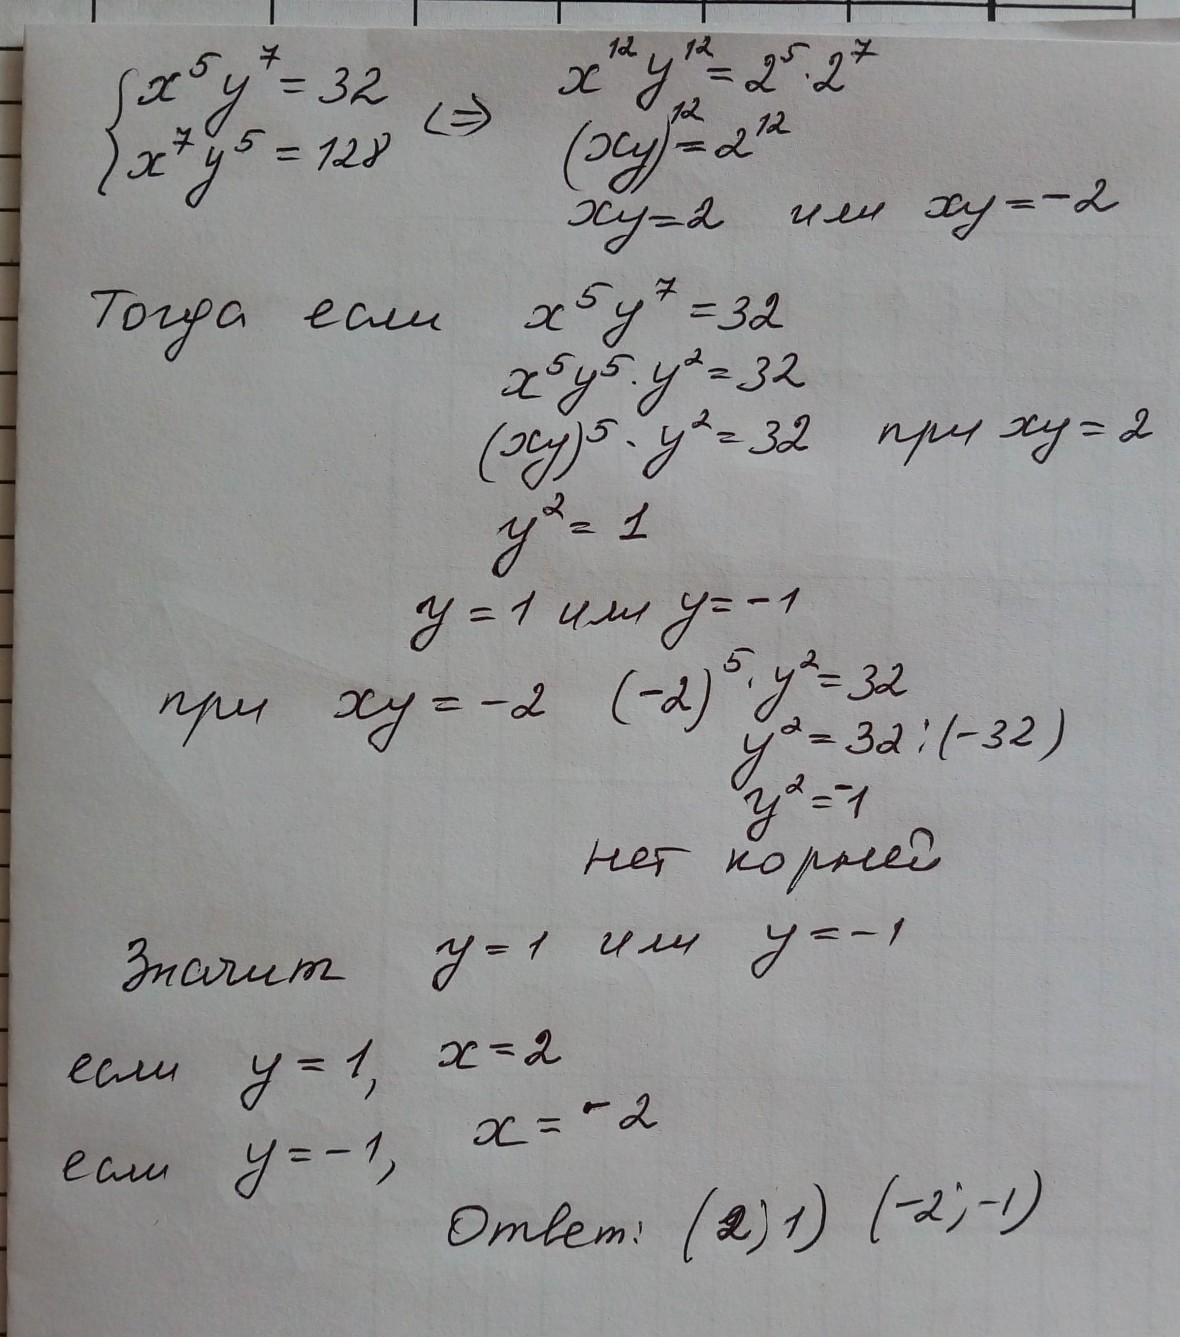 {x⁵y⁷ = 32 <=> x¹²y¹² = 2⁵·2⁷
x⁷y⁵ = 128 (xy)¹² = 2¹²
xy = 2 или xy = -2
Тогда если x⁵y⁷ = 32
x⁵y⁵·y² = 32
(xy)⁵·y² = 32 при xy = 2
y² = 1
y = 1 или y = -1
при xy = -2 (-2)⁵·y² = 32
y² = 32:(-32)
y² = -1
нет корней
Значит y = 1 или y = -1
если y = 1, x = 2
если y = -1, x = -2
Ответ: (2;1) (-2;-1)